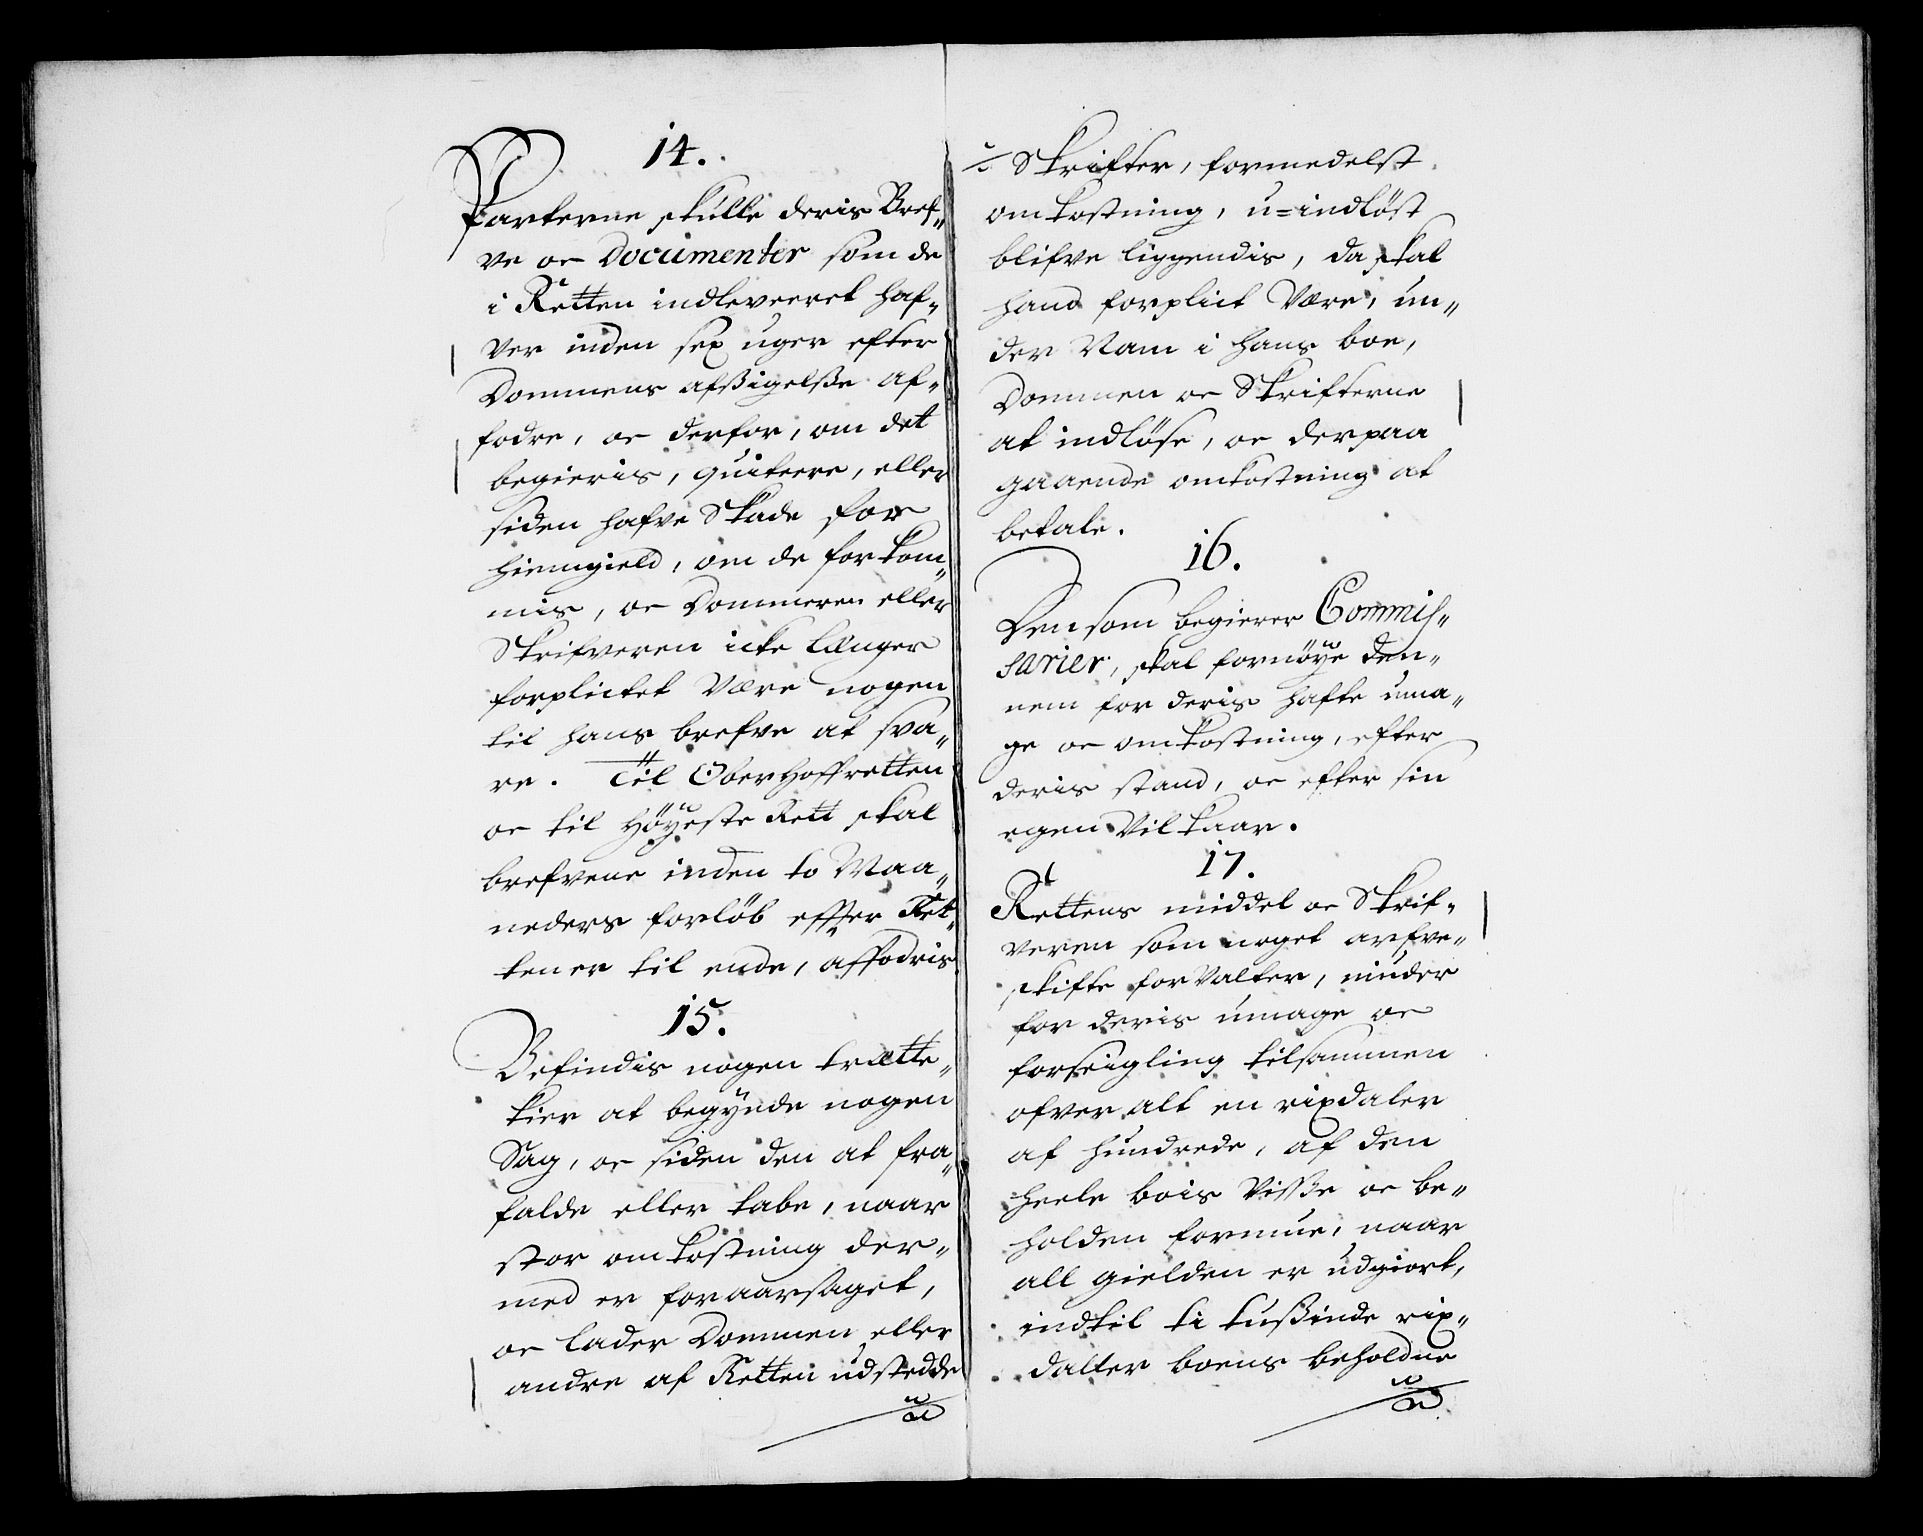 14.
Parterne skulle deris Bref„
ve oc Documenter som de
i Retten indleveeret haf„
ver inden sex uger efter
Dommens afsigelße af„
fodre, oc derfor, om det
begieris, qviteere, eller
siden hafve Skade for
hiemgield, om de forkom„
mis, oc Dommeren eller
Skrifveren icke længer
forplictet være nogen
til hans brefve at sva„
re. Til OberHoffretten
oc til Høyeste Rett skal
brefvene inden to Maa„
neders forløb effter Ret„
ten er til ende, affodris
15.
Befindis nogen trætte„
kier at begynde nogen
Sag, oc siden den at fra„
falde eller tabe, naar
stor omkostning der„
med er foraarsaget,
oc lader Dommen eller
andre af Retten udstedde
Skrifter, formedelst
omkostning, u=indløst
blifve liggendis, da skal
hand forplict være, un„
der Nam i hans boe,
Dommen oc Skrifterne
at indløse, oc derpaa
gaaende omkostning at
betale.
16.
Den som begierer Commis„
sarier, skal fornøye den„
nem for deris hafte uma„
ge oc omkostning, efter
deris stand, oc efter sin
egen Vilkaar.
17.
Rettens middel oc Skrif„
veren som noget arfve„
skifte forValter, niuder
for deris umage oc
forseigling tilsammen
ofver alt en rixdaler
af hundrede, af den
heele bois Visße oc be„
holden formue, naar
all gielden er udgiort,
indtil ti tußinde rix„
daller boens beholdne